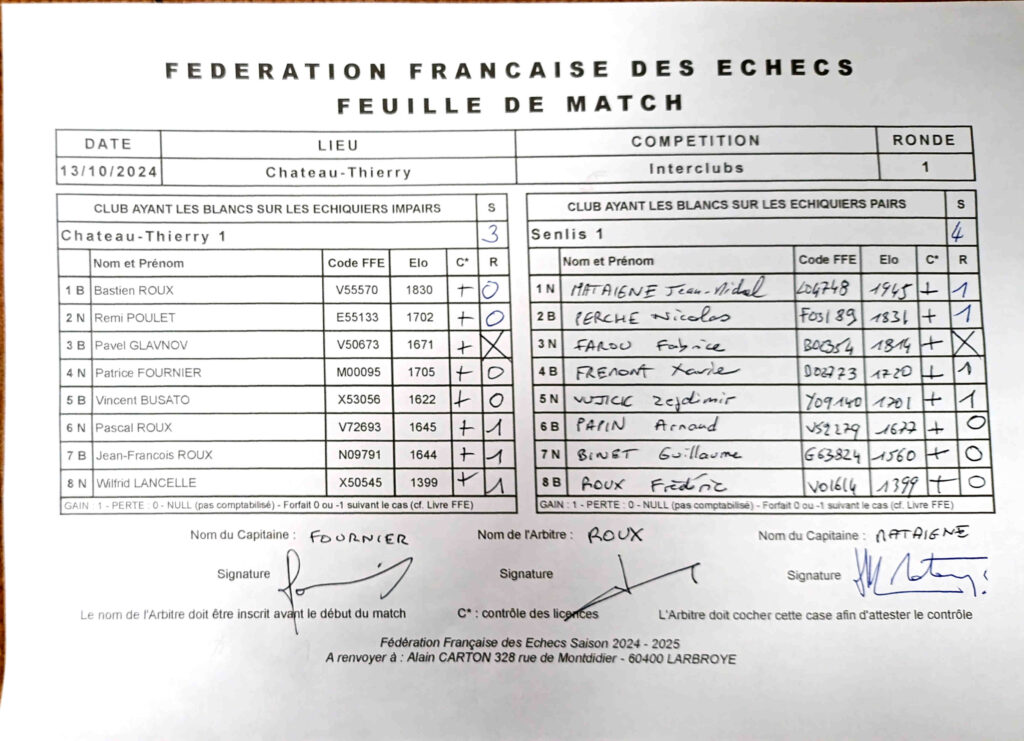 FEDERATION FRANCAISE DES ECHECS
FEUILLE DE MATCH
DATE LIEU COMPETITION RONDE
13/10/2024 Chateau-Thierry Interclubs 1
CLUB AYANT LES BLANCS SUR LES ECHIQUIERS IMPAIRS S CLUB AYANT LES BLANCS SUR LES ECHIQUIERS PAIRS S
Chateau-Thierry 1 3 Senlis 1 4
Nom et Prénom Code FFE Elo C* R Nom et Prénom Code FFE Elo C* R
1 B Bastien ROUX V55570 1830 + 0 1 N MATAIGNE Jean-Michel L04748 1945 + 1
2 N Remi POULET E55133 1702 + 0 2 B PERCHE Nicolas F05189 1831 + 1
3 B Pavel GLAVNOV V50673 1671 + X 3 N FAROU Fabrice 1814 + X
4 N Patrice FOURNIER M00095 1705 + 0 4 B FREMONT Xavier D02773 1720 + 1
5 B Vincent BUSATO X53056 1622 + 0 5 N VUJICIC Zejdimir Y09140 1701 + 1
6 N Pascal ROUX V72693 1645 + 1 6 B PAPIN Arnaud V52279 1677 + 0
7 B Jean-Francois ROUX N09791 1644 + 1 7 N BINET Guillaume G63824 1560 + 0
8 N Wilfrid LANCELLE X50545 1399 + 1 8 B ROUX Frédéric V01614 1399 + 0
GAIN : 1 - PERTE : 0 - NULL (pas comptabilisé) - Forfait 0 ou -1 suivant le cas (cf. Livre FFE) GAIN : 1 - PERTE : 0 - NULL (pas comptabilisé) - Forfait 0 ou -1 suivant le cas (cf. Livre FFE)
Nom du Capitaine : FOURNIER Nom de l'Arbitre : ROUX Nom du Capitaine : MATAIGNE
Signature Signature Signature
Le nom de l'Arbitre doit être inscrit avant le début du match C* : contrôle des licences L'Arbitre doit cocher cette case afin d'attester le contrôle
Fédération Française des Echecs Saison 2024 - 2025
A renvoyer à : Alain CARTON 328 rue de Montdidier - 60400 LARBROYE